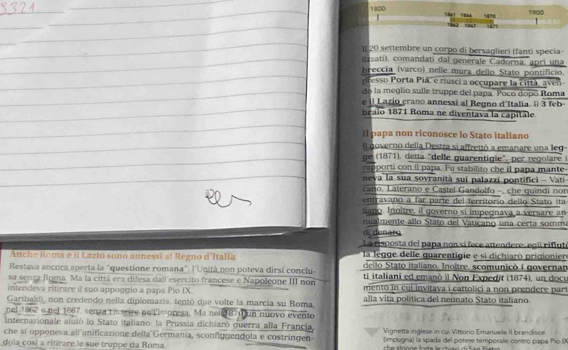 3321
1800
1900
1861 1866 1870
1862 1867 1871
Anche Roma e il Lazio sono annessi al Regno d'Italia
Restava ancora aperta la "questione romana": l'Unità non poteva dirsi conclu-
sa senza Roma. Ma la città era difesa dall'esercito francese e Napoleone III non
intendeva ritirare il suo appoggio a papa Pio IX.
Garibaldi, non credendo nella diplomazia, tentò due volte la marcia su Roma,
nel 1862 e nel 1867, senza riuscire nell'impresa. Ma nel 1870 un nuovo evento
internazionale aiutò lo Stato italiano: la Prussia dichiarò guerra alla Francia,
che si opponeva all'unificazione della Germania, sconfiggendola e costringen-
dola così a ritirare le sue truppe da Roma.
Il 20 settembre un corpo di bersaglieri (fanti specia-
lizzati), comandati dal generale Cadorna, aprì una
breccia (varco) nelle mura dello Stato pontificio,
presso Porta Pia, e riuscì a occupare la città, aven-
do la meglio sulle truppe del papa. Poco dopo Roma
e il Lazio erano annessi al Regno d'Italia. Il 3 feb-
braio 1871 Roma ne diventava la capitale.
Il papa non riconosce lo Stato italiano
Il governo della Destra si affrettò a emanare una leg-
ge (1871), detta "delle guarentigie", per regolare i
rapporti con il papa. Fu stabilito che il papa mante-
neva la sua sovranità sui palazzi pontifici – Vati-
cano, Laterano e Castel Gandolfo –, che quindi non
entravano a far parte del territorio dello Stato ita-
liano. Inoltre, il governo si impegnava a versare an-
nualmente allo Stato del Vaticano una certa somma
di denaro.
La risposta del papa non si fece attendere: egli rifiutò
la legge delle guarentigie e si dichiarò prigionier
dello Stato italiano. Inoltre, scomunicò i governan
ti italiani ed emanò il Non Expedit (1874), un docu
mento in cui invitava i cattolici a non prendere part
alla vita politica del neonato Stato italiano.
Vignetta inglese in cui Vittorio Emanuele II brandisce
(impugna) la spada del potere temporale contro papa Pio IX
che stringe forte le chiavi di San Pietro